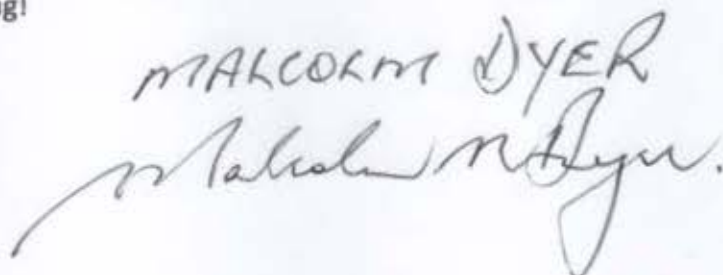 ng!
MALCOLM DYER
Malcolm N Dyer.